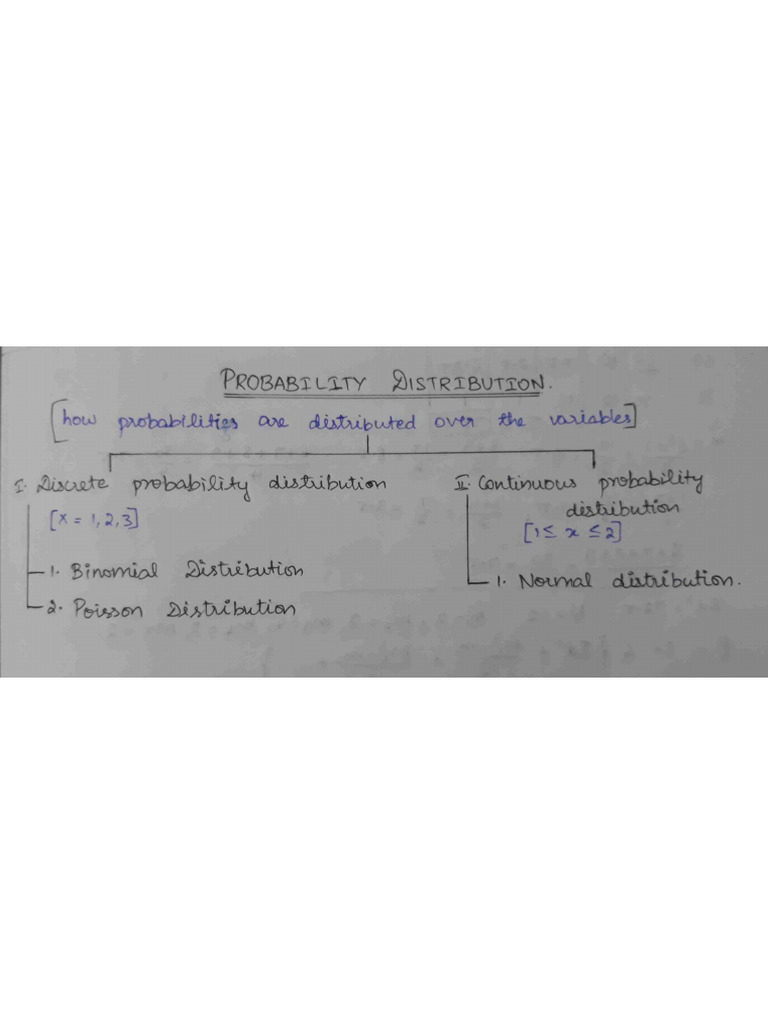 PROBABILITY DISTRIBUTION.
[how probabilities are distributed over the variables]
I. Discrete probability distribution
[X = 1, 2, 3]
1. Binomial Distribution
2. Poisson Distribution
II. Continuous probability
distribution
[1 ≤ x ≤ 2]
1. Normal distribution.